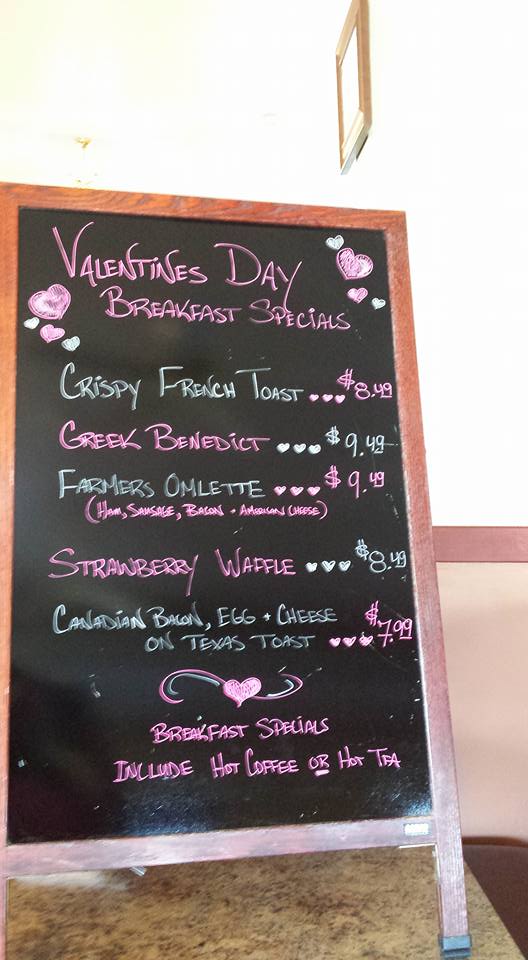 VALENTINES DAY
BREAKFAST SPECIALS
CRISPY FRENCH TOAST ... $8.49
GREEK BENEDICT ... $9.49
FARMERS OMLETTE ... $9.49
(HAM, SAUSAGE, BACON + AMERICAN CHEESE)
STRAWBERRY WAFFLE ... $8.49
CANADIAN BACON, EGG + CHEESE
ON TEXAS TOAST ... $7.99
BREAKFAST SPECIALS
INCLUDE HOT COFFEE OR HOT TEA